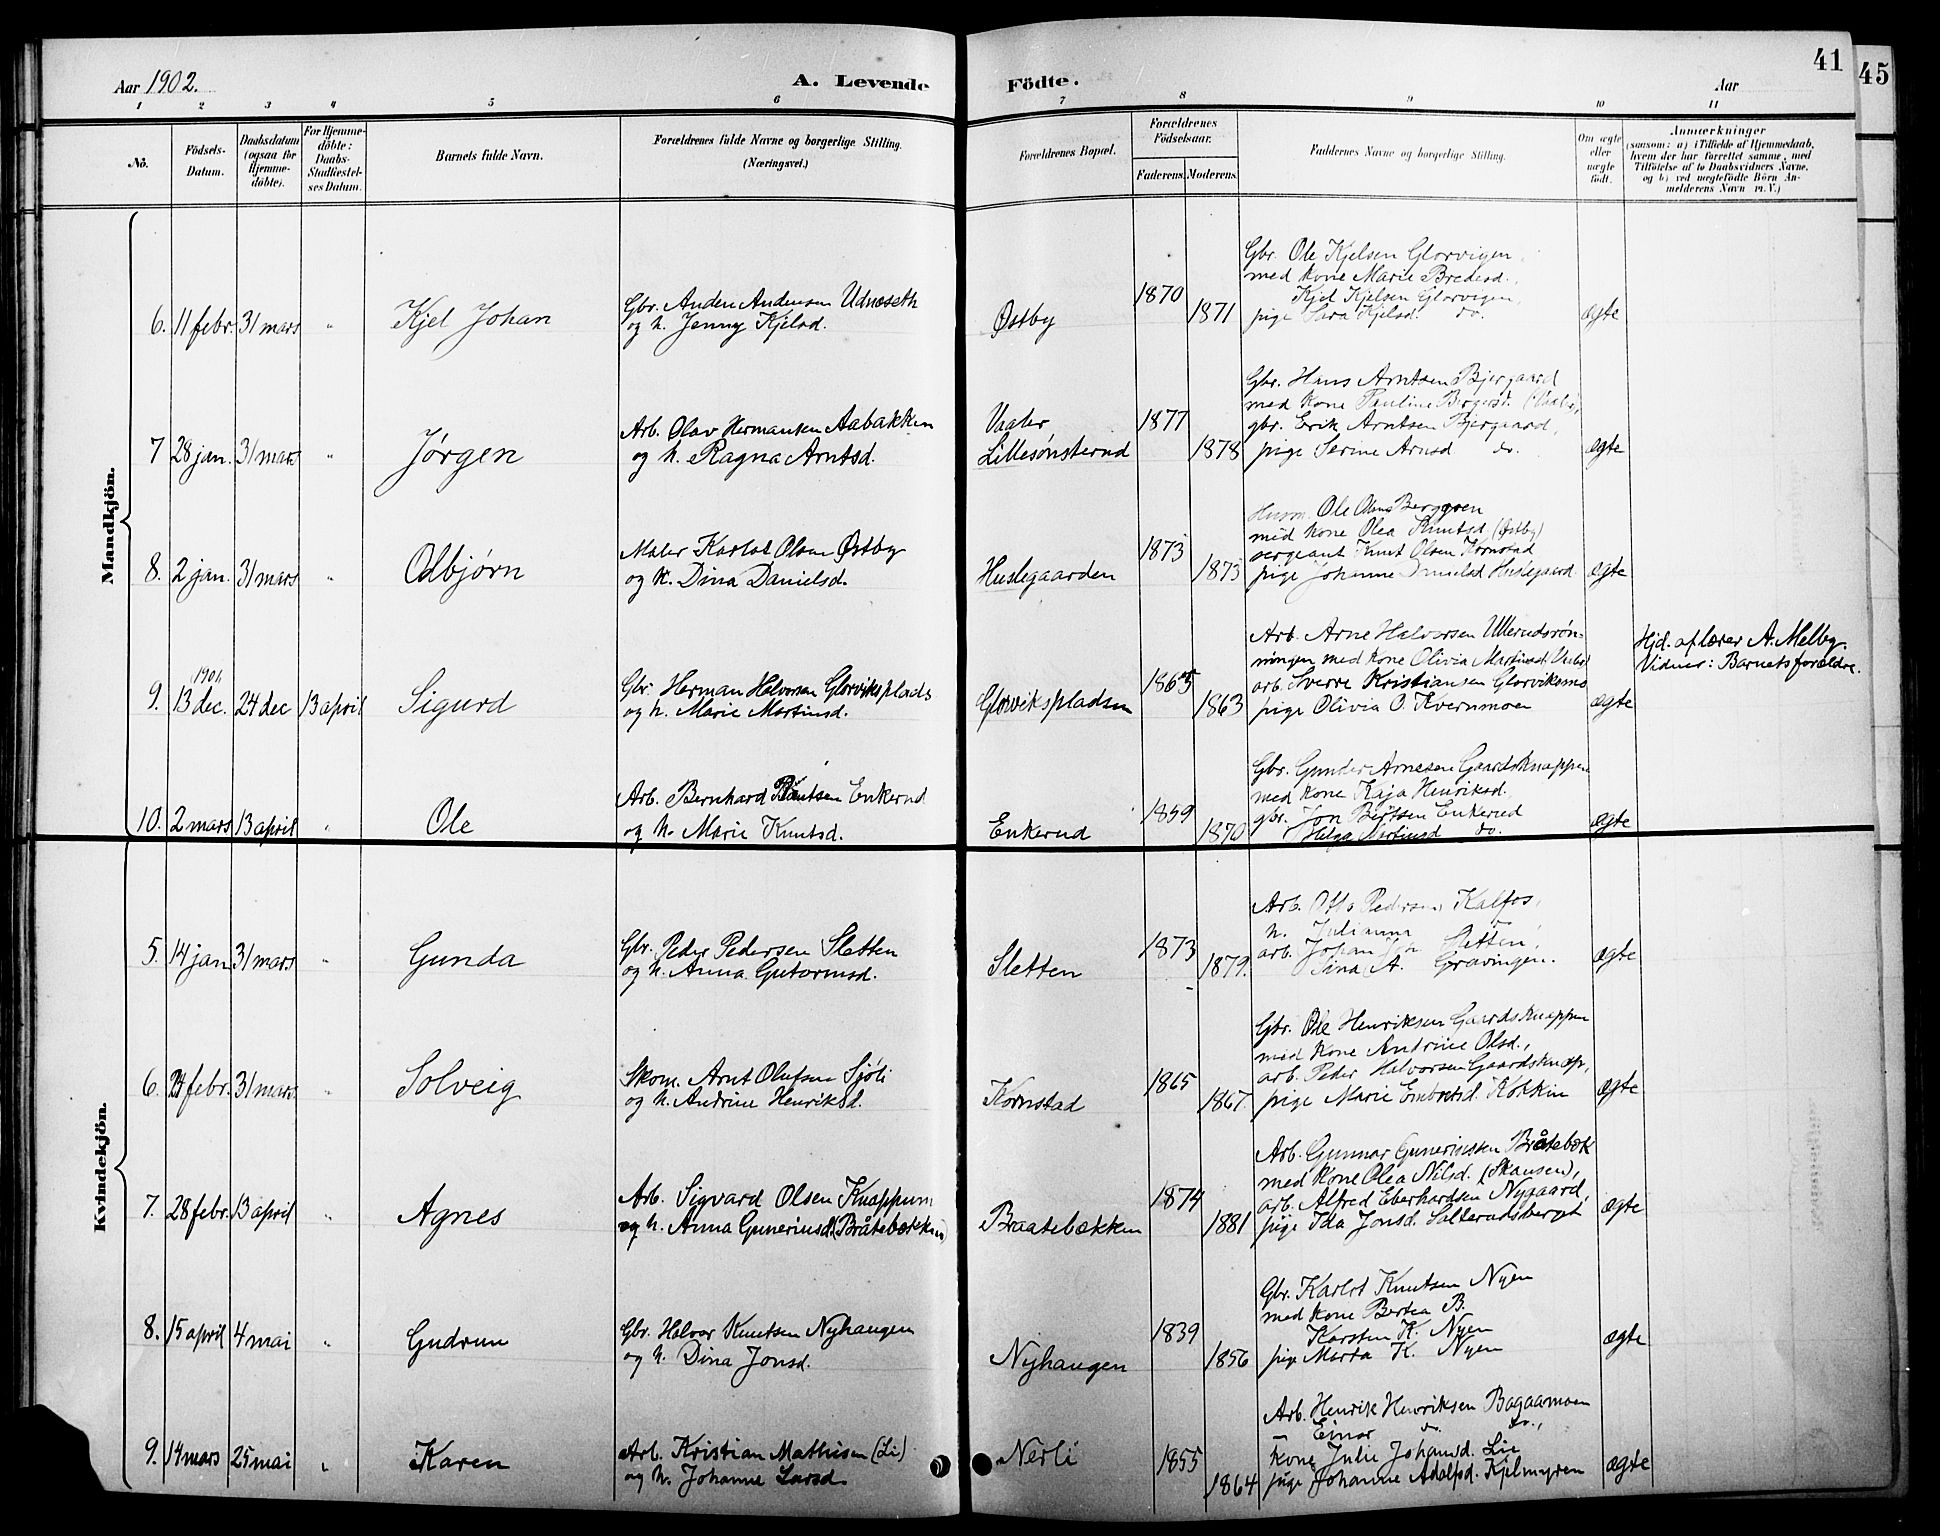 41
45
Aar 1902.
A. Levende Födte.
Aar
1 2 3 4 5 6 7 8 9 10 11
No.
Födsels-Datum.
Daabsdatum (ogsaa for Hjemmedöbte).
For Hjemmedöbte: Daabs-Stadfæstelses Datum.
Barnets fulde Navn.
Forældrenes fulde Navne og borgerlige Stilling.
(Næringsvei.)
Forældrenes Bopæl.
Forældrenes Födselsaar.
Faderens. Moderens.
Faddernes Navne og borgerlige Stilling.
Om ægte eller uægte födt.
Anmærkninger
(saasom: a) i Tilfælde af Hjemmedaab, hvem der har forrettet samme, med Tilföielse af to Daabsvidners Navne, og b) ved uægtefödte Börn Anmelderens Navn m. V.)
Mandkjön.
6. 11 febr. 31 mars " Kjel Johan
Gbr. Anders Andersen Udnæseth
og h. Jenny Kjelsd.
Østby
1870 1871
Gbr. Ole Kjelsen Glorvigen,
med kone Marie Bredesd.,
Kjel Kjelsen Glorvigen,
pige Sara Kjelsd. do.
ægte
7 28 jan. 31 mars " Jørgen
Arb. Olav Hermansen Aabakken
og h. Ragna Arntsd.
Vaaler
Lillesønsterud
1877 1878
Gbr. Hans Arntsen Bjergaard
med kone Pauline
gbr. Erik Arntsen Bjergaard,
pige Serine Arnsd do.
ægte
8. 2 jan. 31 mars " Odbjørn
Maler Karlot Olsen Østby
og h. Dina Danielsd.
Huslegaarden
1873 1873
Husm. Ole Olsen Berggren
med kone Olea Knutsd. (Østby)
sergeant Knut Olsen Kornstad
pige Johanne Danielsd Huslegaard
ægte
9. 1901 13 dec. 24 dec 13 april Sigurd
Gbr. Herman Halvorsen Glorviksplads
og h. Marie Martinsd.
Glorvikspladsen
1865 1863
Arb. Arne Halvorsen Ullerudsrøn-
ningen med kone Olivia Martinsd.
arb. Sverre Kristiansen Glorviksmo
pige Olivia O. Kvernmoen
ægte
Hjd. af lærer A. Melby.
Vidner: Barnets forældre.
10. 2 mars 13 april " Ole
Arb. Bernhard Berntsen Enkerud
og h. Marie Knutsd.
Enkerud
1859 1870
Gbr. Gunder Arnesen Gaardsknappen
med kone Kaja Henriksd.
gbr. Jon Berntsen Enkerud
Helga Martinsd do.
ægte
Kvindekjön.
5. 14 jan 31 mars " Gunda
Gbr. Peder Pedersen Sletten
og h. Anna Gutormsd.
Sletten
1873 1879.
Arb. Otto Pedersen Kalfos,
h. Julianna do
arb. Johan Joh. Sletten,
Sina A. Gravingen.
ægte
6. 24 febr. 31 mars " Solveig
Skom. Arnt Olufsen Sjöli
og h. Andrine Henriksd.
Kornstad
1865 1867.
Gbr. Ole Henriksen Gaardsknappen
med kone Antrine Olsd.,
arb. Peder Halvorsen Gaardsknap,
pige Marie Embretsd. Kokkin
ægte
7. 28 febr. 13 april " Agnes
Arb. Sigvard Olsen Knappum
og h. Anna Gunerinsd. (Bråtebækken)
Braatebækken
1874 1881
Arb. Gunnar Gunerinsen Bråtebæk
med kone Olea Nilsd. (Skansen),
arb. Alfred Eberhardsen Nygaard,
pige Ida Jonsd. Salterudsberget
ægte
8. 15 april 4 mai " Gudrun
Gbr. Halvor Knutsen Nyhaugen
og h. Dina Jonsd.
Nyhaugen
1839 1856
Gbr. Karlot Knutsen Nyen
med kone Bertea B.
Karsten K. Nyen
pige Marta K. Nyen
ægte
9. 14 mars 25 mai " Karen
Arb. Kristian Mathisen (Li)
og h. Johanne Larsd.
Nerli
1855 1864
Arb. Henrik Henriksen Bagaamoen
– Einar do. do.,
kone Julie Johansd. Lie
pige Johanne Adolfsd. Kjelmyren
ægte